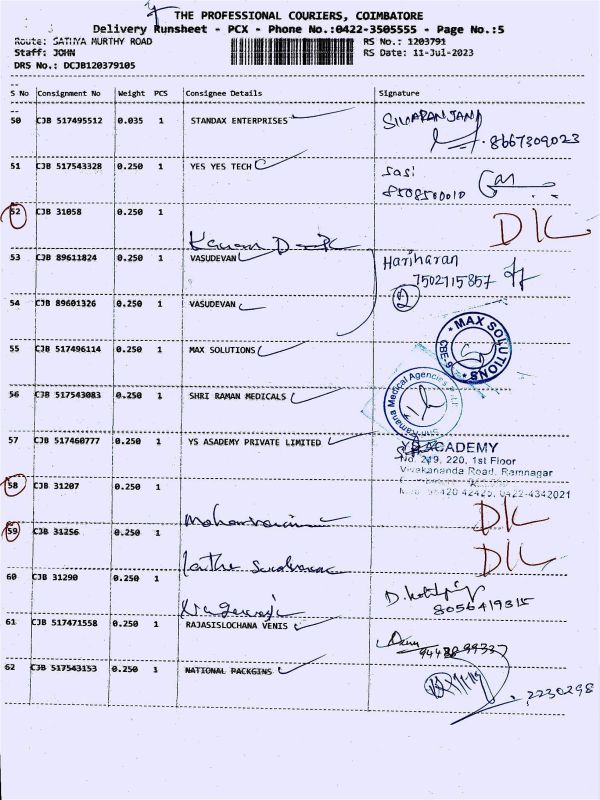 THE PROFESSIONAL COURIERS, COIMBATORE
Delivery Runsheet - PCX - Phone No.:0422-3505555 - Page No.:5
Route: SATHYA MURTHY ROAD RS No.: 1203791
Staff: JOHN RS Date: 11-Jul-2023
DRS No.: DCJB120379105
S No Consignment No Weight PCS Consignee Details Signature
50 CJB 517495512 0.035 1 STANDAX ENTERPRISES
8667309023
51 CJB 517543328 0.250 1 YES YES TECH Sasi
8508500010
52 CJB 31058 0.250 1 DK
53 CJB 89611824 0.250 1 VASUDEVAN Hariharan
7502115857
54 CJB 89601326 0.250 1 VASUDEVAN 2
55 CJB 517496114 0.250 1 MAX SOLUTIONS * MAX SOLUTIONS * CBE-9
56 CJB 517543083 0.250 1 SHRI RAMAN MEDICALS Medical Agencies
57 CJB 517460777 0.250 1 YS ASADEMY PRIVATE LIMITED ACADEMY
No. 219, 220, 1st Floor
Vivekananda Road, Ramnagar
42425, 0422-4342021
58 CJB 31207 0.250 1 DK
59 CJB 31256 0.250 1 DK
60 CJB 31290 0.250 1
8056419315
61 CJB 517471558 0.250 1 RAJASISLOCHANA VENIS
62 CJB 517543153 0.250 1 NATIONAL PACKGINS
2230298